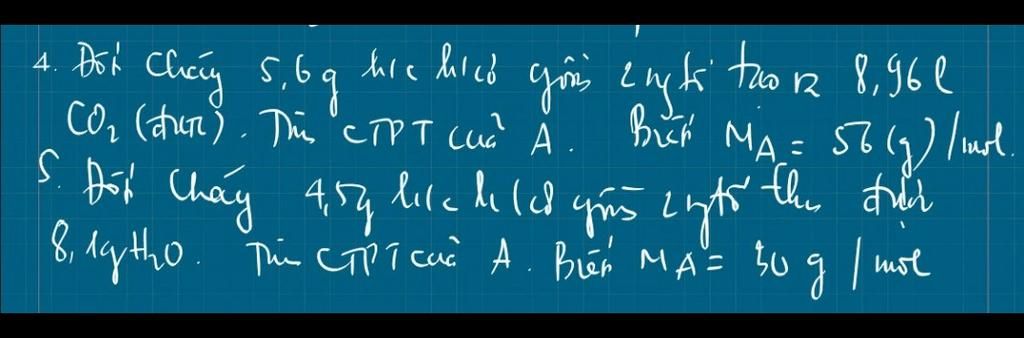 4. Đốt cháy 5,6g h/c h/cơ gồm 2 ngtố tạo ra 8,96l
CO2 (đktc). Tìm CTPT của A. Biết MA = 56 (g)/mol.
5. Đốt cháy 4,5g h/c h/cơ gồm 2 ngtố thu được
8,1g H2O. Tìm CTPT của A. Biết MA = 30 g/mol